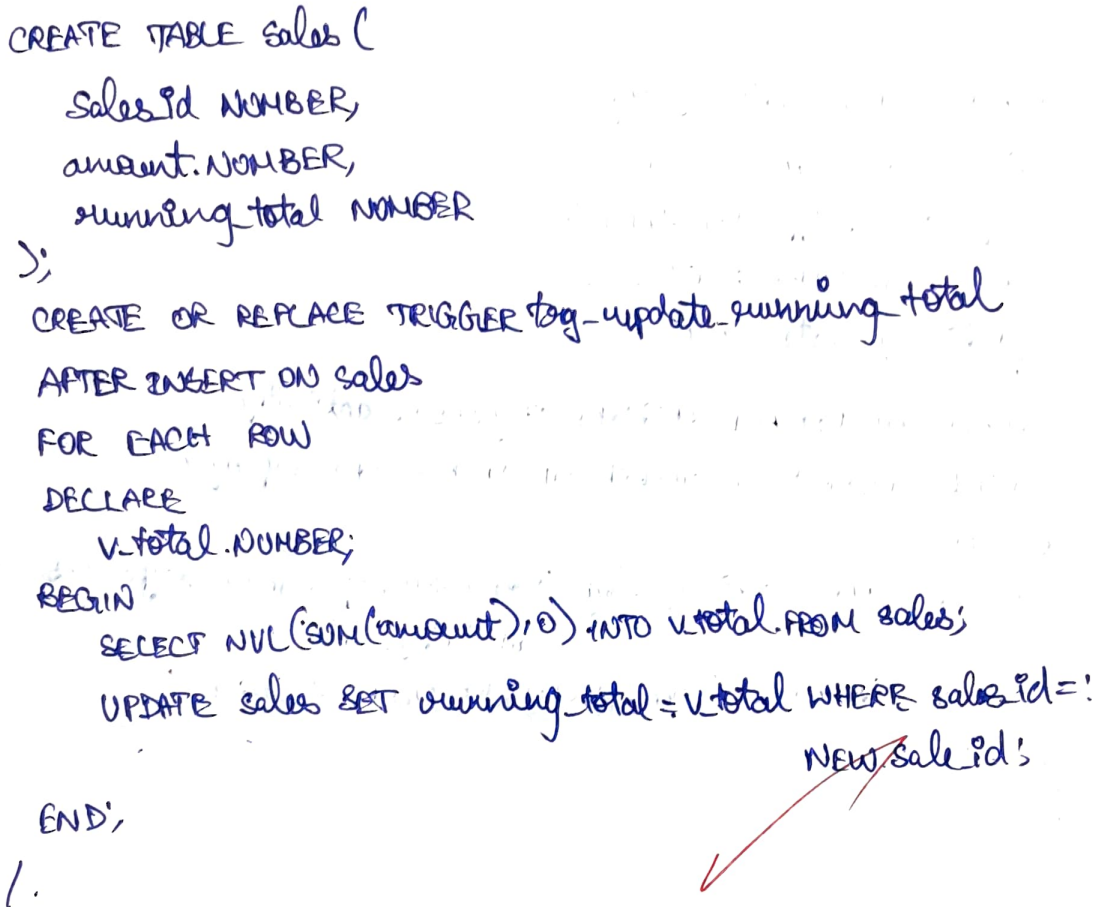 CREATE TABLE sales (
sales_id NUMBER,
amount NUMBER,
running_total NUMBER
);
CREATE OR REPLACE TRIGGER trg_update_running_total
AFTER INSERT ON sales
FOR EACH ROW
DECLARE
v_total NUMBER;
BEGIN
SELECT NVL(SUM(amount),0) INTO v_total FROM sales;
UPDATE sales SET running_total = v_total WHERE sales_id = :
NEW.sale_id;
END;
/